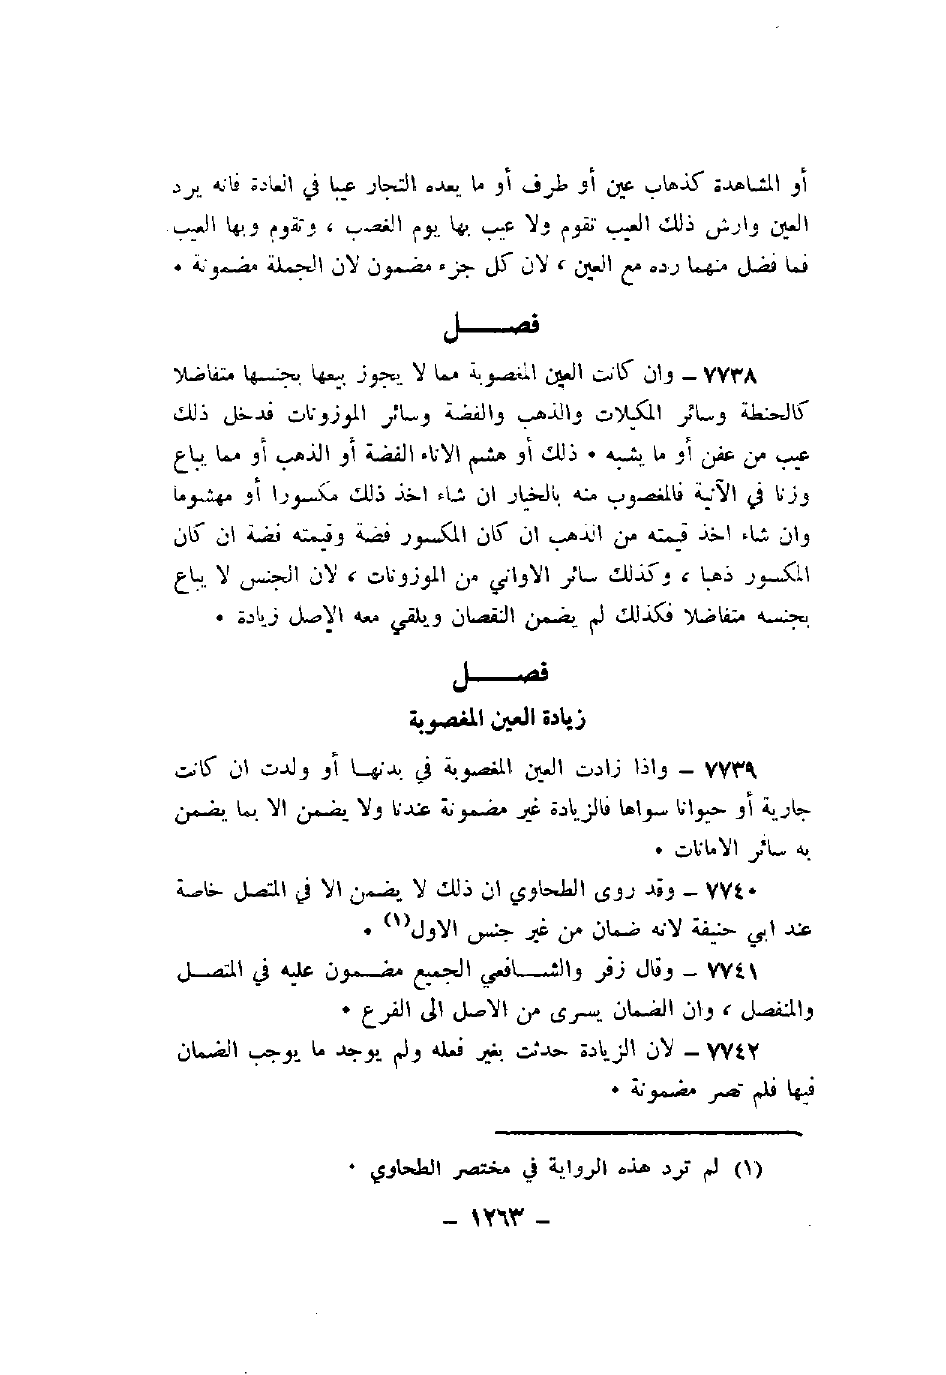 أو المشاهدة كذهاب عين أو طرف أو ما يعده التجار عيبا في العادة فانه يرد
العين وارش ذلك العيب تقوم ولا عيب بها يوم الغصب ، وتقوم وبها العيب
فما فضل منهما رده مع العين ، لان كل جزء مضمون لان الجملة مضمونة •
فصـــــل
٧٧٣٨ – وان كانت العين المغصوبة مما لا يجوز بيعها بجنسها متفاضلا
كالحنطة وسائر المكيلات والذهب والفضة وسائر الموزونات فدخل ذلك
عيب من عفن أو ما يشبه • ذلك أو هشم الاناء الفضة أو الذهب أو مما يباع
وزنا في الآنية فالمغصوب منه بالخيار ان شاء اخذ ذلك مكسورا أو مهشوما
وان شاء اخذ قيمته من الذهب ان كان المكسور فضة وقيمته فضة ان كان
المكسور ذهبا ، وكذلك سائر الاواني من الموزونات ، لان الجنس لا يباع
بجنسه متفاضلا فكذلك لم يضمن النقصان ويلقي معه الاصل زيادة •
فصـــــل
زيادة العين المغصوبة
٧٧٣٩ – واذا زادت العين المغصوبة في بدنهـا أو ولدت ان كانت
جارية أو حيوانا سواها فالزيادة غير مضمونة عندنا ولا يضمن الا بما يضمن
به سائر الامانات •
٧٧٤٠ – وقد روى الطحاوي ان ذلك لا يضمن الا في المتصل خاصة
عند ابي حنيفة لانه ضمان من غير جنس الاول(١) •
٧٧٤١ – وقال زفر والشـــافعي الجميع مضـمون عليه في المتصـل
والمنفصل ، وان الضمان يسرى من الاصل الى الفرع •
٧٧٤٢ – لان الزيادة حدثت بغير فعله ولم يوجد ما يوجب الضمان
فيها فلم تصر مضمونة •
(١) لم ترد هذه الرواية في مختصر الطحاوي •
– ١٢٦٣ –